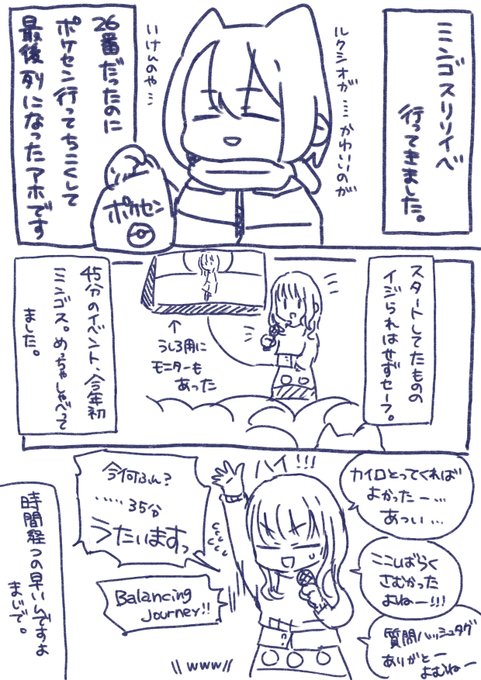 ミンゴスリリイベ
行ってきました。
ルクシオが….かわいいのが
いけんのや…
26番だったのに
ポケセン行ってちこくして
最後列になったアホです
ポケセン
スタートしてたものの
イジられはせずセーフ。
↑
うしろ用に
モニターも
あった
45分のイベント、今年初
ミンゴス。めっちゃしゃべって
ました。
カイロとってくれば
よかったー…
あつい…
ハイ!!!
今何ふん?
……35分
うたいますっ
ここしばらく
さむかった
よねー!!!
Balancing
Journey!!
質問ハッシュタグ
ありがとー
よむねー
\\ www //
時間経つの早いんですよ
まじで。